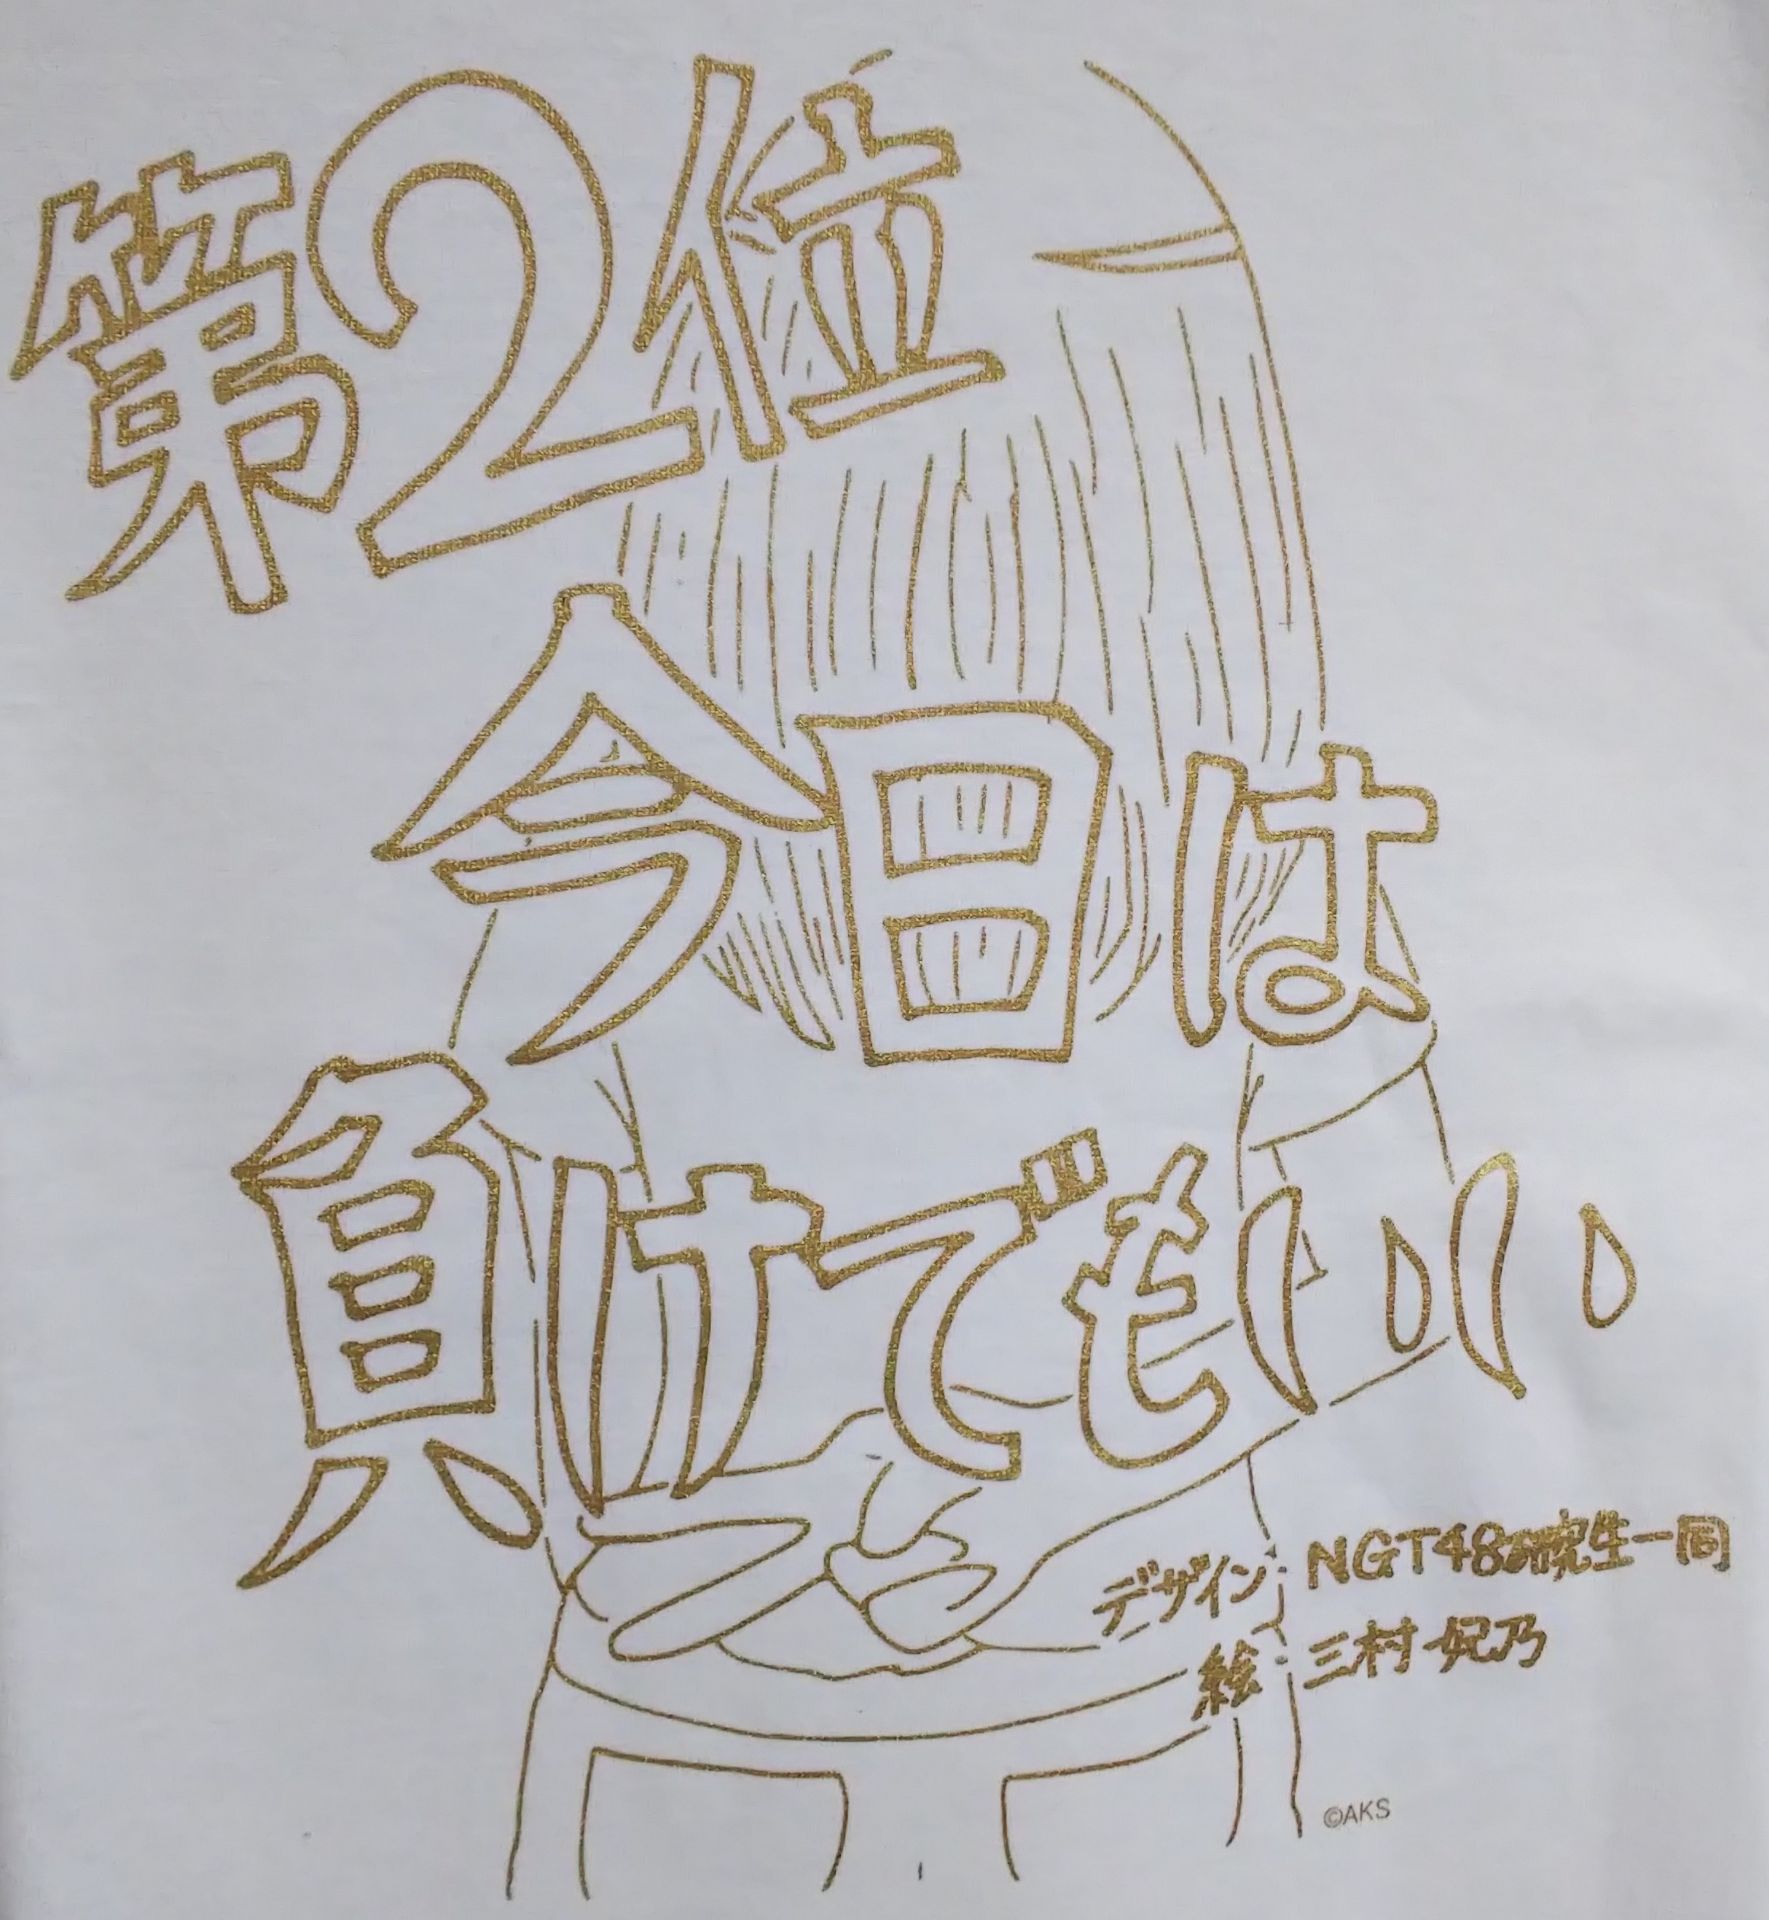 第2位
今日は
負けでもいい
デザイン:NGT48研究生一同
絵:三村妃乃
©AKS